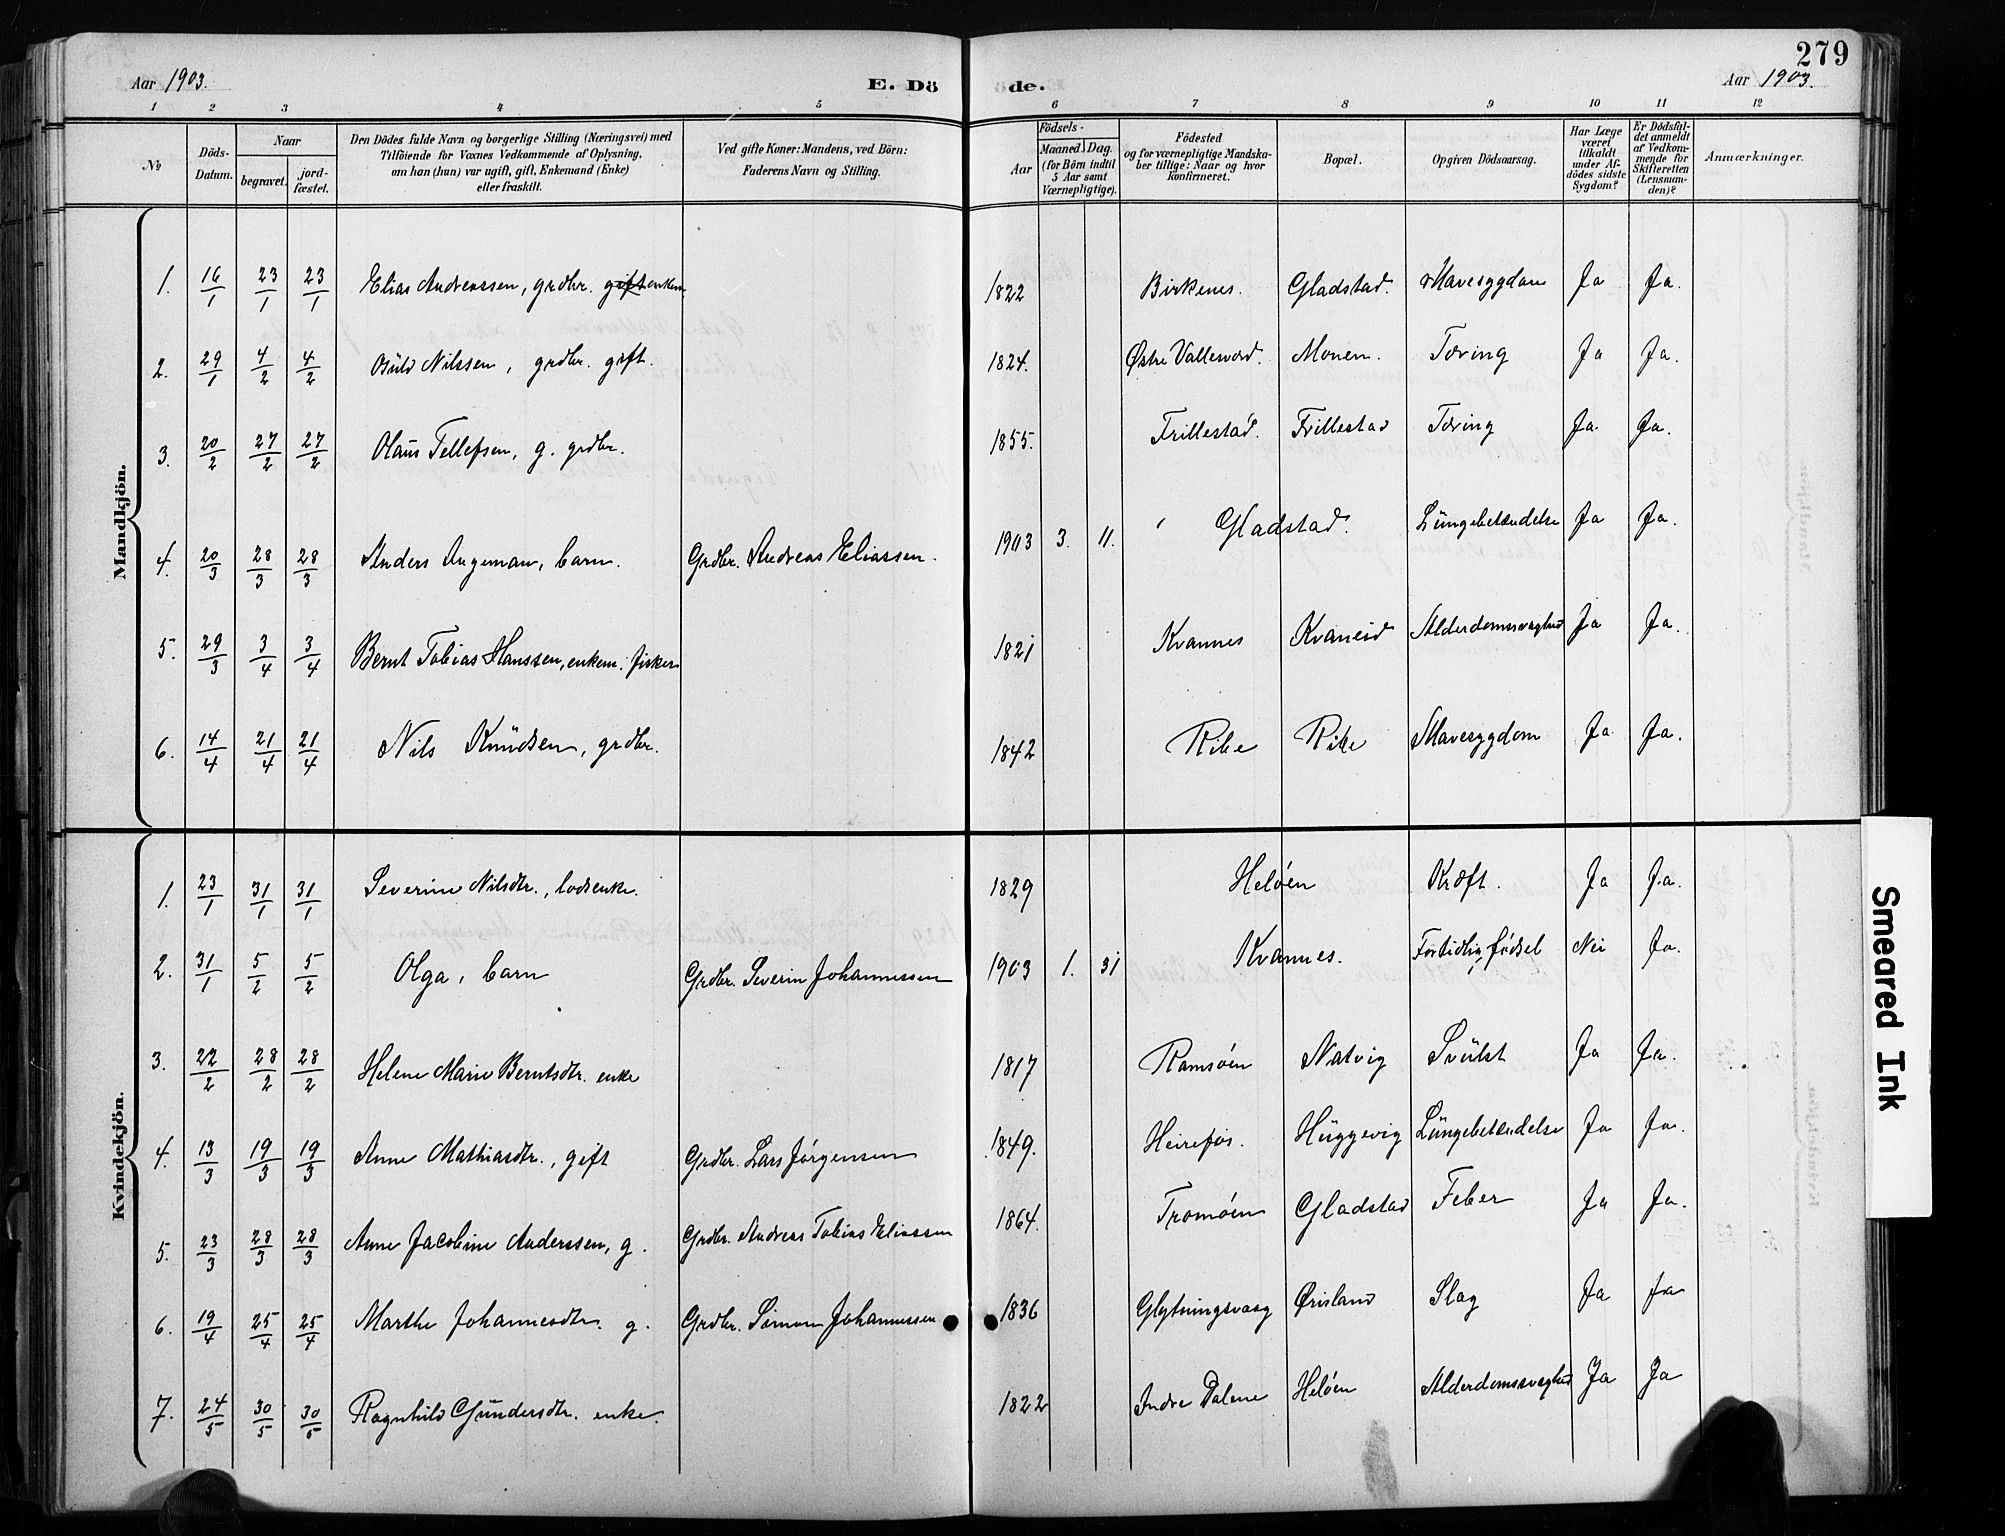 279
Aar 1903. E. Dö de. Aar 1903.
1 2 3 4 5 6 7 8 9 10 11 12
№ Döds-Datum. Naar begravet. jord-fæstet. Den Dödes fulde Navn og borgerlige Stilling (Næringsvei) med Tilföiende for Voxnes Vedkommende af Oplysning, om han (hun) var ugift, gift, Enkemand (Enke) eller fraskilt. Ved gifte Koner: Mandens, ved Börn: Faderens Navn og Stilling. Födsels- Aar Maaned Dag. (for Börn indtil 5 Aar samt Værnepligtige). Födested og for værnepligtige Mandskaber tillige: Naar og hvor konfirmeret. Bopæl. Opgiven Dödsaarsag. Har Læge været tilkaldt under Afdödes sidste Sygdom? Er Dödsfaldet anmeldt af Vedkommende for Skifteretten (Lensmanden)? Anmærkninger.
Mandkjön.
1. 16/1 23/1 23/1 Elias Andreassen, grdbr. gift enkem. 1822 Birkenes. Gladstad. Mavesygdom Ja Ja.
2. 29/1 4/2 4/2 Nilssen, grdbr. gift. 1824. Østre Vallesværd. Monen. Tæring Ja Ja.
3. 20/2 27/2 27/2 Olaus Tellefsen, g. grdbr. 1855. Frillestad. Frillestad Tæring Ja. Ja.
4. 20/3 28/3 28/3 Anders Angeman, barn. Grdbr. Andreas Eliassen. 1903 3. 11. Gladstad. Lungebetændelse Ja Ja.
5. 29/3 3/4 3/4 Bernt Tobias Hanssen, enkem. fisker 1821 Kvannes Kvaneid Alderdomssvaghed Ja Ja.
6. 14/4 21/4 21/4 Nils Knudsen, grdbr. 1842 Rike Rike Mavesygdom Ja Ja.
Kvindekjön.
1. 23/1 31/1 31/1 Severine Nilsdtr., lodsenke. 1829 Heløen Kræft. Ja Ja.
2. 31/1 5/2 5/2 Olga, barn Grdbr. Severin Johannessen 1903 1. 31 Kvannes. Fortidlig fødsel Nei Ja.
3. 22/2 28/2 28/2 Helene Marie Berntsdtr. enke 1817 Ramsøen Natvig Svulst Ja Ja.
4. 13/3 19/3 19/3 Anne Mathiasdtr., gift Grdbr. Lars Jørgensen 1849. Heirefos. Huggevig Lungebetændelse Ja Ja.
5. 23/3 28/3 28/3 Anne Jacobine Anderssen, g. Grdbr. Andreas Tobias Eliassen 1864. Tromøen Gladstad Feber Ja Ja.
6. 19/4 25/4 25/4 Marthe Johannesdtr. g. Grdbr. Simon Johannessen 1836 Glytningsvaag Ørisland Slag Ja Ja
7. 24/5 30/5 30/5 Ragnhild Gundersdtr. enke. 1822 Indre Dalene Heløen Alderdomssvaghed Ja Ja
Smeared Ink